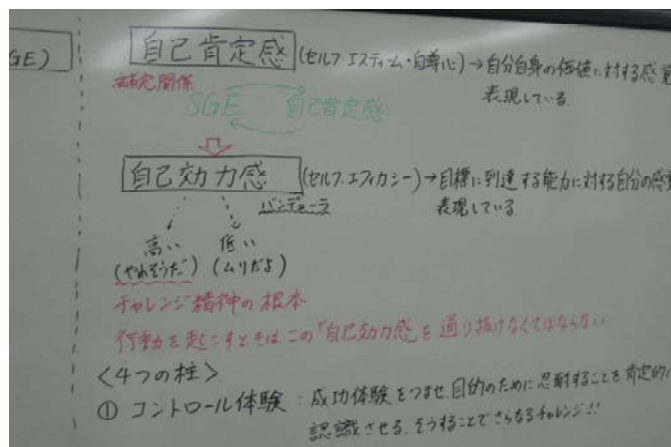 GE)
自己肯定感 (セルフエスティーム・自尊心)→自分自身の価値に対する感覚
表現している
補完関係
SGE 自己肯定感
自己効力感 (セルフ.エフィカシー)→目標に到達する能力に対する自分の感覚
バンデューラ 表現している
高い 低い
(やれそうだ) (ムリだよ)
チャレンジ精神の根本
行動を起こすときはこの「自己効力感」を通り抜けなくてはならない
<4つの柱>
① コントロール体験:成功体験をつませ、目的のために忍耐することを肯定的に
認識させる、そうすることでさらなるチャレンジ!!